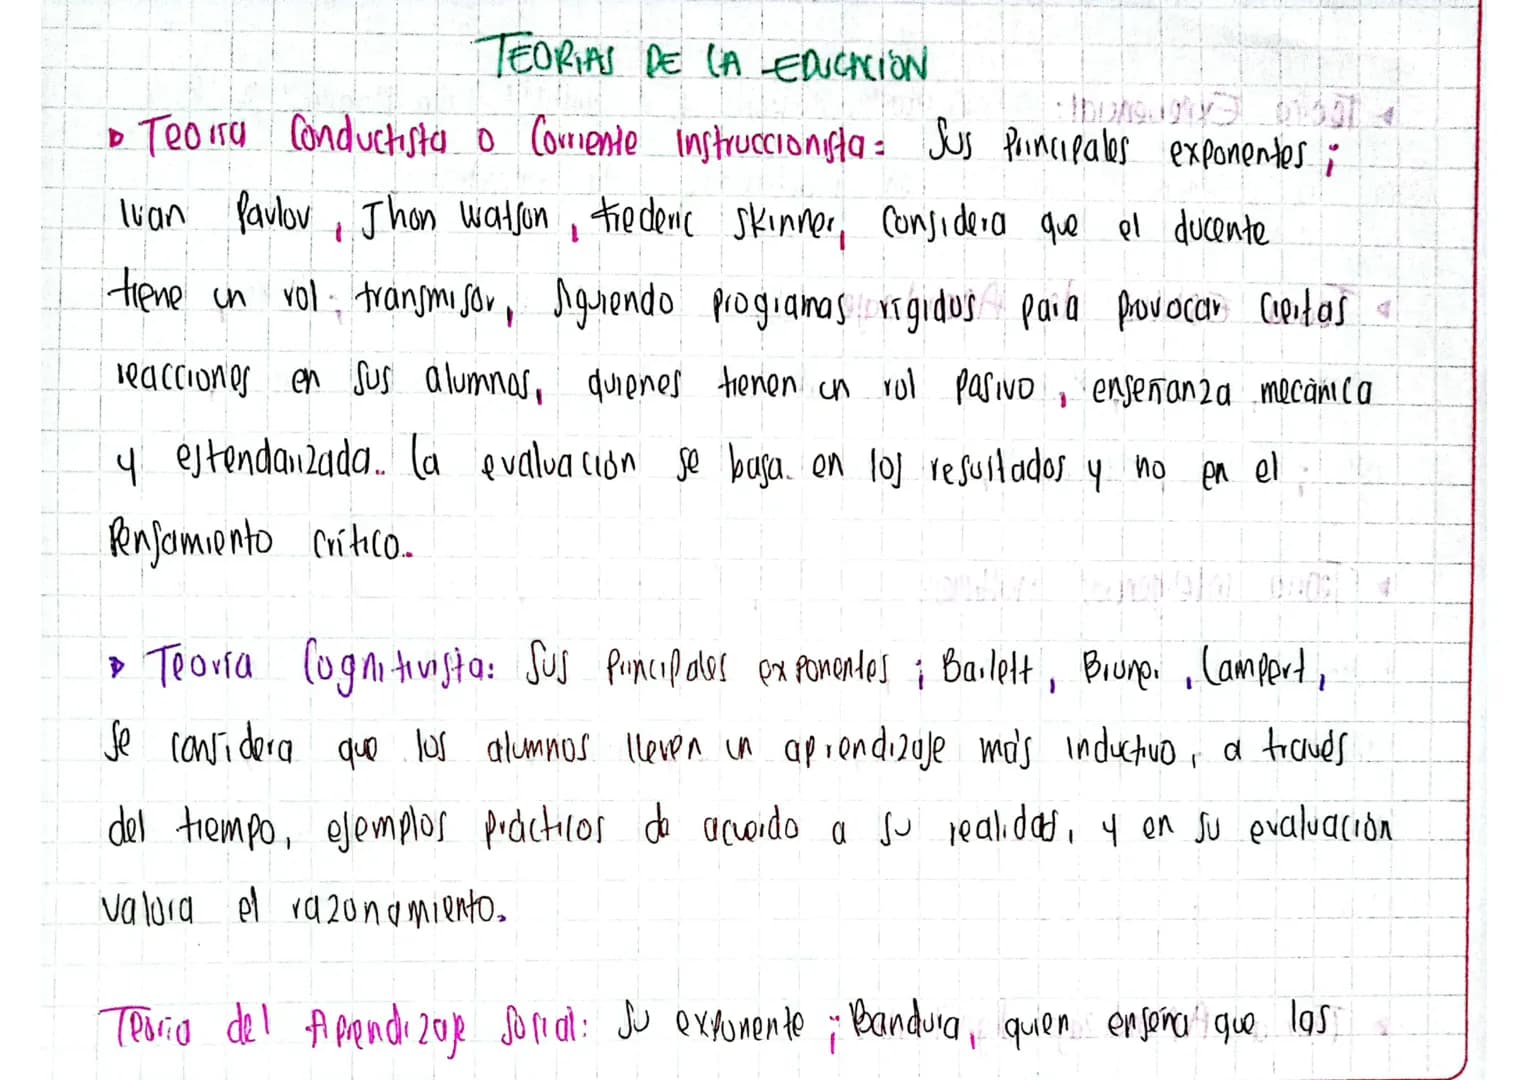 TEORIAS DE LA EDUCACION
Teoria Conductista o Corriente Instruccionista: Sus Principales exponentes ;
Ivan Pavlov , Jhon Watson , frederic Skinner, Considera que el docente
tiene un rol transmisor, Siguiendo programas rígidos para provocar Ciertas
reacciones en sus alumnos, quienes tienen un rol pasivo , enseñanza mecánica
y estendarizada.. La evaluación se basa en los resultados y no en el
Pensamiento crítico..
Teoría Cognitivista: Sus Principales exponentes ; Barlett , Bruner , Lampert ,
Se considera que los alumnos lleven un aprendizaje más inductivo , a través
del tiempo, ejemplos prácticos de acuerdo a su realidad, y en su evaluación
valora el razonamiento.
Teoria del Aprendizaje Social: Su exponente ; Bandura, quien enseña que las
Teoria Experiencial:
Teoria